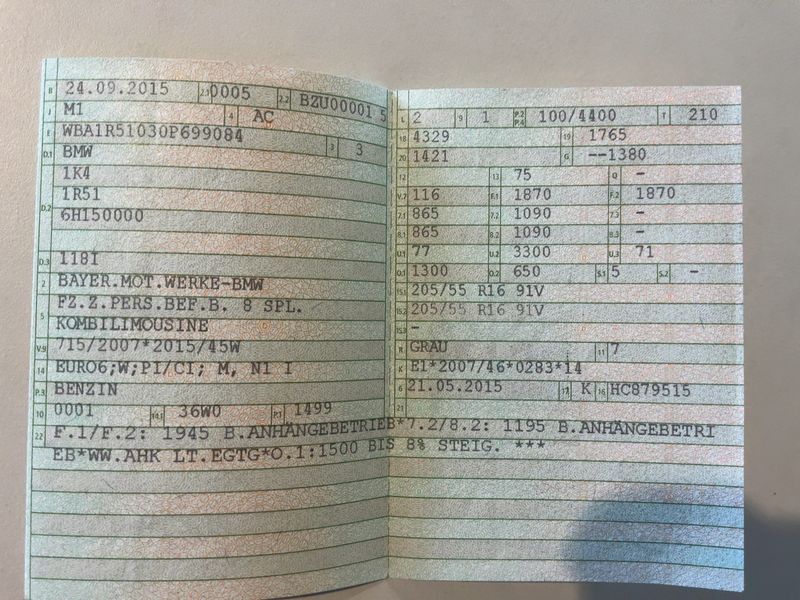 B 24.09.2015 2.1 0005 2.2 BZU00001 5
J M1 4 AC
E WBA1R51030P699084 3 3
D.1 BMW
1K4
D.2 1R51
6HI50000
D.3 118I
2 BAYER.MOT.WERKE-BMW
5 FZ.Z.PERS.BEF.B. 8 SPL.
KOMBILIMOUSINE
V.9 715/2007*2015/45W
14 EURO6;W;PI/CI; M, N1 I
P.3 BENZIN
10 0001 14.1 36W0 P.1 1499
L 2 9 1 P.2 P.4 100/4400 T 210
18 4329 19 1765
20 1421 G --1380
12 13 75 Q -
V.7 116 F.1 1870 F.2 1870
7.1 865 7.2 1090 7.3 -
8.1 865 8.2 1090 8.3 -
U.1 77 U.2 3300 U.3 71
O.1 1300 O.2 650 S.1 5 S.2 -
15.1 205/55 R16 91V
15.2 205/55 R16 91V
15.3 -
R GRAU 11 7
K E1*2007/46*0283*14
6 21.05.2015 17 K 16 HC879515
21
22 F.1/F.2: 1945 B.ANHÄNGEBETRIEB*7.2/8.2: 1195 B.ANHÄNGEBETRI
EB*WW.AHK LT.EGTG*O.1:1500 BIS 8% STEIG. ***